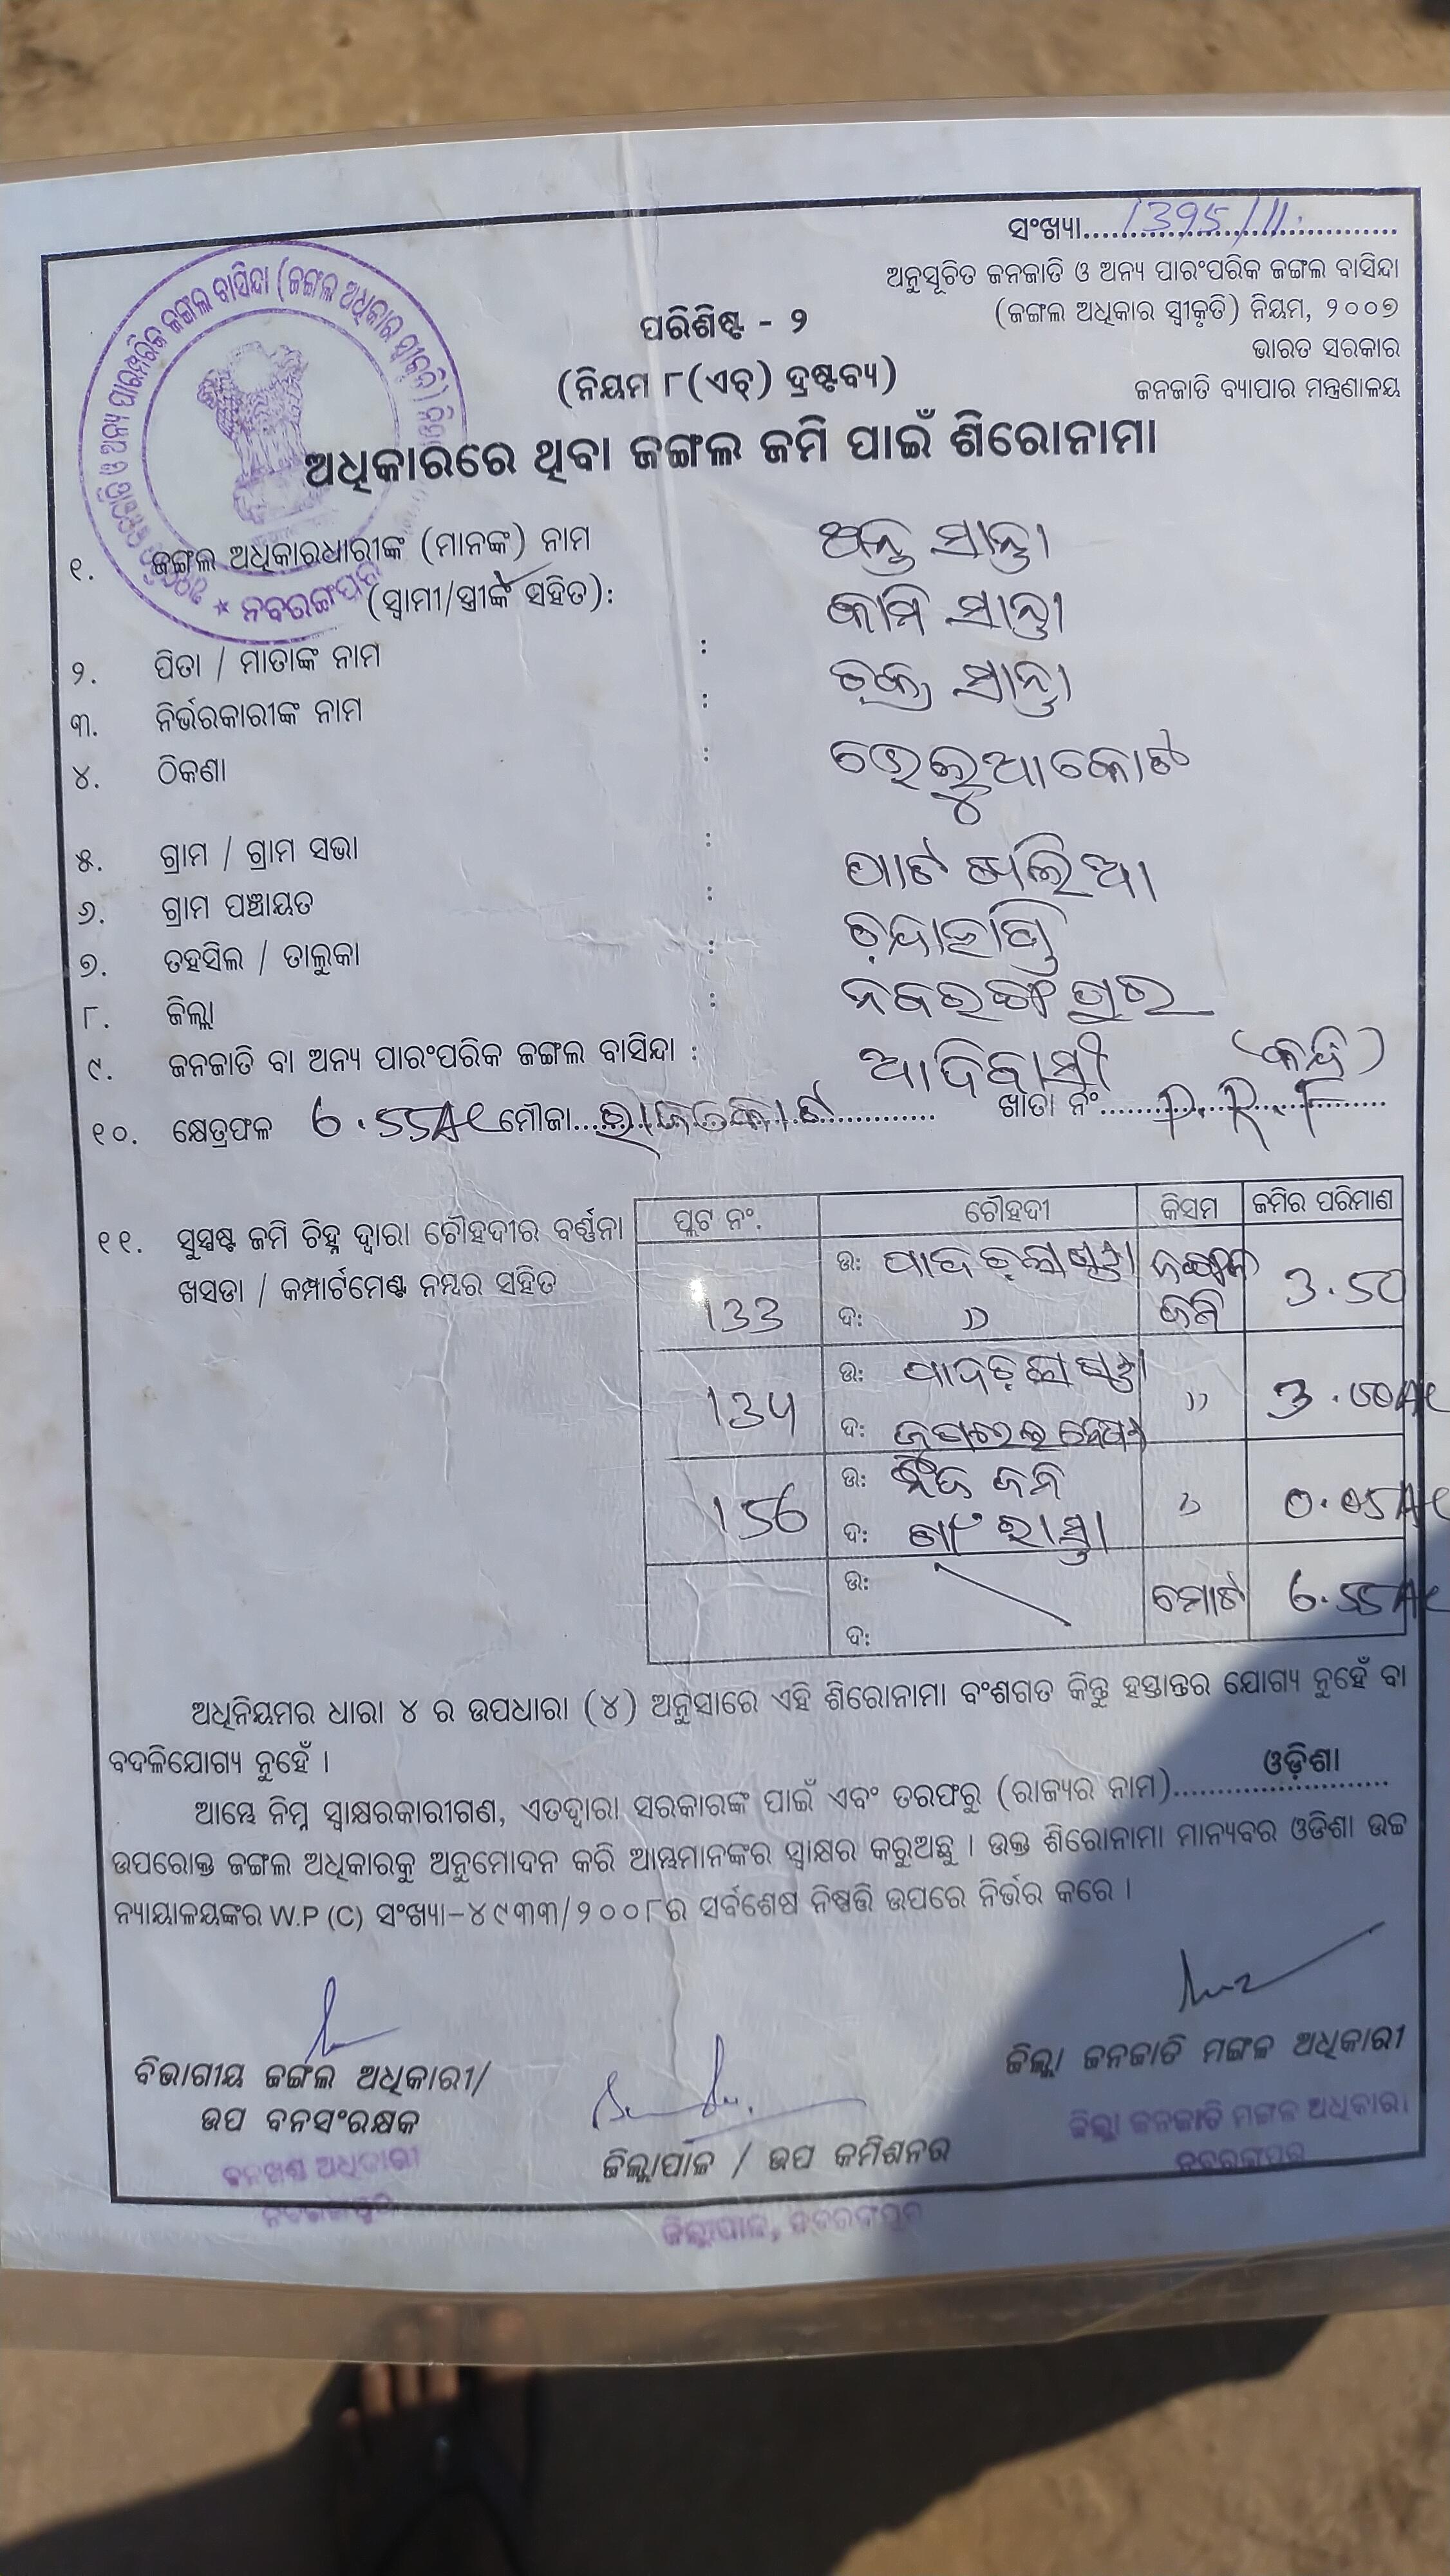 ସଂଖ୍ୟା.... 1395/11
ଅନୁସୂଚିତ ଜନଜାତି ଓ ଅନ୍ୟ ପାରଂପରିକ ଜଙ୍ଗଲ ବାସିନ୍ଦା
(ଜଙ୍ଗଲ ଅଧିକାର ସ୍ୱୀକୃତି) ନିୟମ, ୨୦୦୭
ଭାରତ ସରକାର
ଜନଜାତି ବ୍ୟାପାର ମନ୍ତ୍ରଣାଳୟ
ପରିଶିଷ୍ଟ - ୨
(ନିୟମ ୮(ଏଚ୍) ଦ୍ରଷ୍ଟବ୍ୟ)
ଅଧିକାରରେ ଥିବା ଜଙ୍ଗଲ ଜମି ପାଇଁ ଶିରୋନାମା
୧. ଜଙ୍ଗଲ ଅଧିକାରଧାରୀଙ୍କ (ମାନଙ୍କ) ନାମ ଅନ୍ତୁ ସାନ୍ତା
(ସ୍ୱାମୀ/ସ୍ତ୍ରୀଙ୍କ ସହିତ): ସାନ୍ତା
୨. ପିତା / ମାତାଙ୍କ ନାମ : ସାନ୍ତା
୩. ନିର୍ଭରକାରୀଙ୍କ ନାମ :
୪. ଠିକଣା :
୫. ଗ୍ରାମ / ଗ୍ରାମ ସଭା :
୬. ଗ୍ରାମ ପଞ୍ଚାୟତ :
୭. ତହସିଲ / ତାଲୁକା : ଚନ୍ଦାହାଣ୍ଡି
୮. ଜିଲ୍ଲା : ନବରଙ୍ଗପୁର
୯. ଜନଜାତି ବା ଅନ୍ୟ ପାରଂପରିକ ଜଙ୍ଗଲ ବାସିନ୍ଦା : ଆଦିବାସୀ
୧୦. କ୍ଷେତ୍ରଫଳ 6.55Ac ମୌଜା.... ଖାତା ନଂ.... P.R.F
୧୧. ସୁସ୍ପଷ୍ଟ ଜମି ଚିହ୍ନ ଦ୍ୱାରା ଚୌହଦୀର ବର୍ଣ୍ଣନା
ଖସଡା / କମ୍ପାର୍ଟମେଣ୍ଟ ନମ୍ବର ସହିତ
ପ୍ଲଟ ନଂ. ଚୌହଦୀ କିସମ ଜମିର ପରିମାଣ
133 ଉ: ଜଙ୍ଗଲ 3.50
ଦ: " ଜମି
134 ଉ: " 3.00Ac
ଦ:
156 ଉ: ନିଜ ଜମି " 0.05Ac
ଦ: ରାସ୍ତା
ଉ: ମୋଟ 6.55Ac
ଦ:
ଅଧିନିୟମର ଧାରା ୪ ର ଉପଧାରା (୪) ଅନୁସାରେ ଏହି ଶିରୋନାମା ବଂଶଗତ କିନ୍ତୁ ହସ୍ତାନ୍ତର ଯୋଗ୍ୟ ନୁହେଁ ବା
ବଦଳିଯୋଗ୍ୟ ନୁହେଁ ।
ଆମ୍ଭେ ନିମ୍ନ ସ୍ୱାକ୍ଷରକାରୀଗଣ, ଏତଦ୍ୱାରା ସରକାରଙ୍କ ପାଇଁ ଏବଂ ତରଫରୁ (ରାଜ୍ୟର ନାମ).... ଓଡ଼ିଶା
ଉପରୋକ୍ତ ଜଙ୍ଗଲ ଅଧିକାରକୁ ଅନୁମୋଦନ କରି ଆମ୍ଭମାନଙ୍କର ସ୍ୱାକ୍ଷର କରୁଅଛୁ । ଉକ୍ତ ଶିରୋନାମା ମାନ୍ୟବର ଓଡିଶା ଉଚ୍ଚ
ନ୍ୟାୟାଳୟଙ୍କର W.P (C) ସଂଖ୍ୟା-୪୯୩୩/୨୦୦୮ର ସର୍ବଶେଷ ନିଷ୍ପତ୍ତି ଉପରେ ନିର୍ଭର କରେ ।
ବିଭାଗୀୟ ଜଙ୍ଗଲ ଅଧିକାରୀ/
ଉପ ବନସଂରକ୍ଷକ
ବନଖଣ୍ଡ ଅଧିକାରୀ
ନବରଙ୍ଗପୁର
ଜିଲ୍ଲାପାଳ / ଉପ କମିଶନର
ଜିଲ୍ଲାପାଳ, ନବରଙ୍ଗପୁର
ଜିଲ୍ଲା ଜନଜାତି ମଙ୍ଗଳ ଅଧିକାରୀ
ଜିଲ୍ଲା ଜନଜାତି ମଙ୍ଗଳ ଅଧିକାରୀ
ନବରଙ୍ଗପୁର